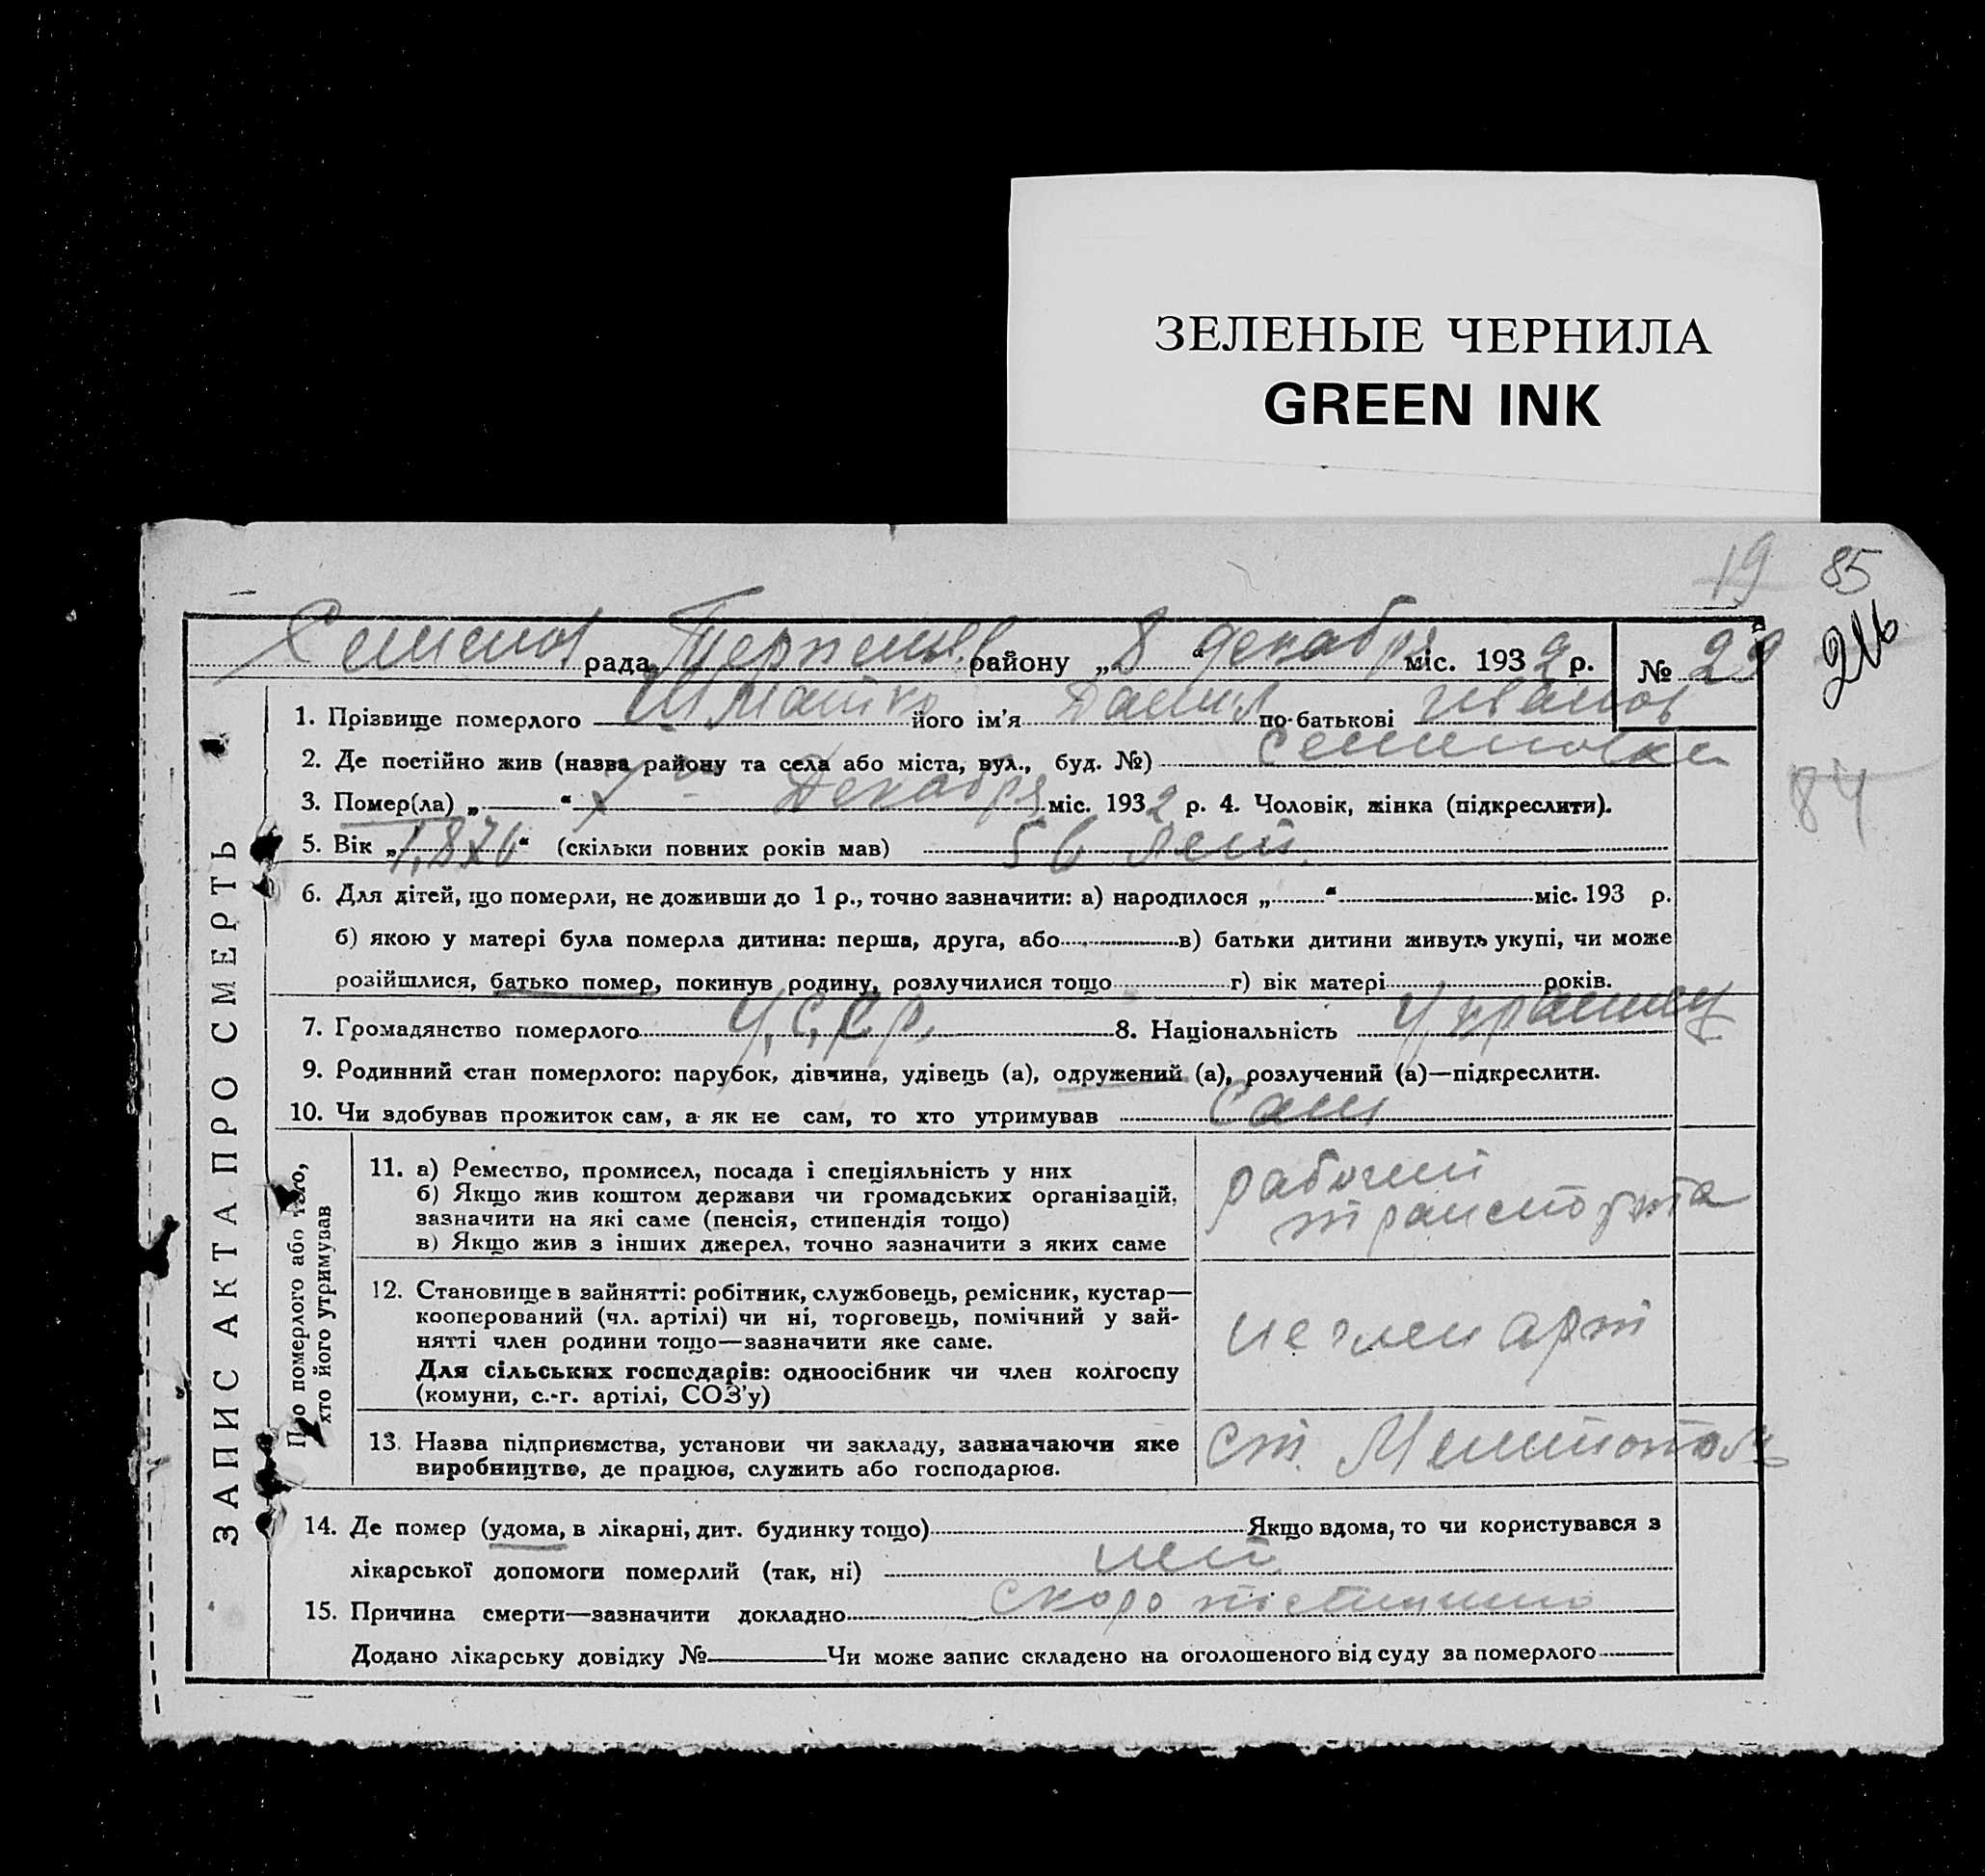 ЗЕЛЕНЫЕ ЧЕРНИЛА
GREEN INK
19 85
216
84
ЗАПИС АКТА ПРО СМЕРТЬ
Семенов рада Терпеньев району „8“ декабря міс. 1932 р. № 29
1. Прізвище померлого Шматко його ім'я Данил по-батькові Иванов
2. Де постійно жив (назва району та села або міста, вул., буд. №) Семеновка
3. Помер(ла) „ “ Декабря міс. 1932 р. 4. Чоловік, жінка (підкреслити).
5. Вік „1876“ (скільки повних років мав) 56 лет.
6. Для дітей, що померли, не доживши до 1 р., точно зазначити: а) народилося „ “ міс. 193 р.
б) якою у матері була померла дитина: перша, друга, або в) батьки дитини живуть укупі, чи може
розійшлися, батько помер, покинув родину, розлучилися тощо г) вік матері років.
7. Громадянство померлого У.С.С.р. 8. Національність Украинец
9. Родинний стан померлого: парубок, дівчина, удівець (а), одружений (а), розлучений (а)—підкреслити.
10. Чи здобував прожиток сам, а як не сам, то хто утримував Сам
Про померлого або того,
хто його утримував
11. а) Ремество, промисел, посада і спеціяльність у них
б) Якщо жив коштом держави чи громадських організацій,
зазначити на які саме (пенсія, стипендія тощо)
в) Якщо жив з інших джерел, точно зазначити з яких саме
рабочий
транспорта
12. Становище в зайнятті: робітник, службовець, ремісник, кустар—
кооперований (чл. артілі) чи ні, торговець, помічний у зай-
нятті член родини тощо—зазначити яке саме.
Для сільських господарів: одноосібник чи член колгоспу
(комуни, с.-г. артілі, СОЗ'у)
не член арт
13. Назва підприємства, установи чи закладу, зазначаючи яке
виробництво, де працює, служить або господарює.
ст. Мелитополь
14. Де помер (удома, в лікарні, дит. будинку тощо) Якщо вдома, то чи користувався з
лікарської допомоги померлий (так, ні) нет
15. Причина смерти—зазначити докладно скоропостижно
Додано лікарську довідку № Чи може запис складено на оголошеного від суду за померлого